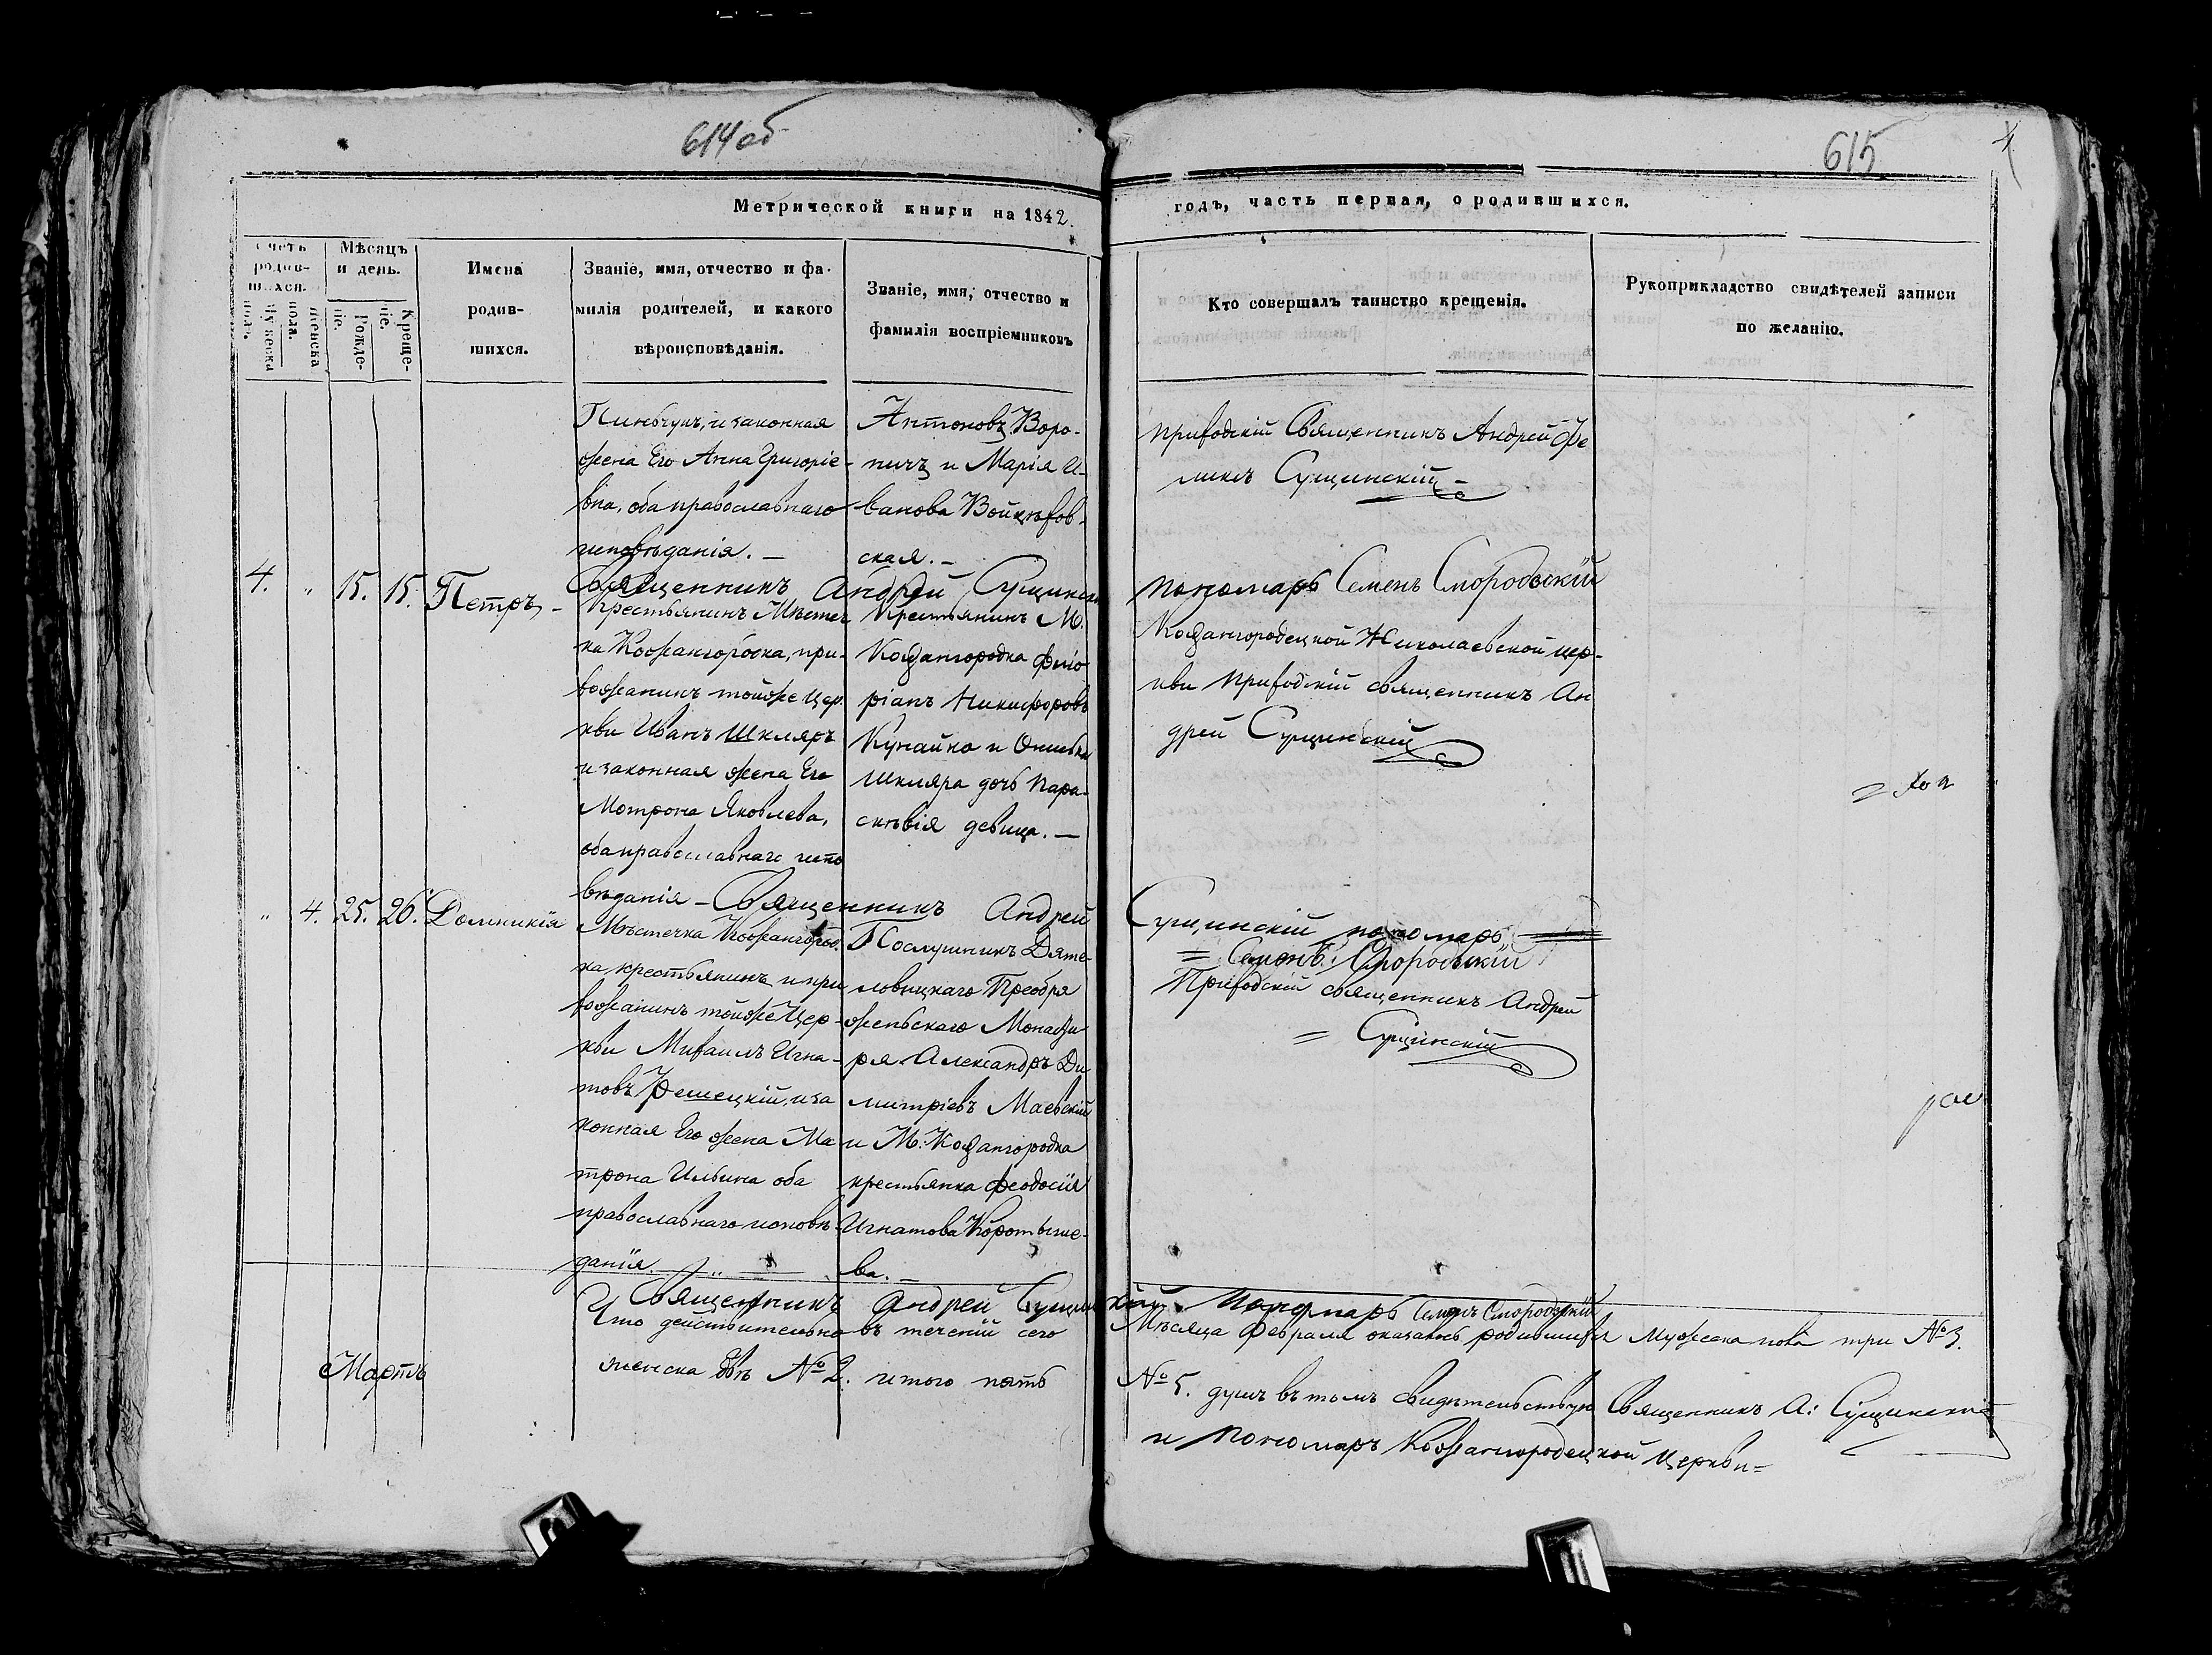 614 об
615
4
Метрической книги на 1842.
годъ, часть первая, о родившихся.
Счетъ родив-
шихся.
Мужеска
пола.
Женска
пола.
Мѣсяцъ
и день.
Рожде-
ніе.
Креще-
ніе.
Имена
родив-
шихся.
Званіе, имя, отчество и фа-
милія родителей, и какого
вѣроисповѣданія.
Званіе, имя, отчество и
фамилія воспріемниковъ
Кто совершалъ таинство крещенія.
Рукоприкладство свидѣтелей записи
по желанію.
Пиньчукъ, и законная
жена Его Анна Григоріе-
вна, оба православнаго
исповѣданія. —
Антоновъ Воро-
ничъ и Марія И-
ванова Войцѣхов-
ская. —
приходскій Священникъ Андрей Фе
ликсъ Сущинскій —
Священникъ Андрей Сущинскі
пономарь Семенъ Смородскій
4. „ 15. 15. Петръ —
Крестьянинъ Мѣстеч
ка Кожангородка, при-
хожанинъ тойже Цер-
кви Иванъ Шкляръ
и законная жена Его
Мотрона Яковлева,
оба православнаго испо
вѣданія —
Крестьянинъ М.
Кожангородка Фло
ріанъ Никифоровъ
Кунайко и
Шкляра дочь Пара-
скѣвія девица. —
Кожангородецкой Николаевской цер-
кви приходскій священникъ Ан
дрей Сущинскій
Священникъ Андрей
Сущинскій пономарь
= Семенъ Смородскій
„ 4. 25. 26. Домникія
Мѣстечка Кожангород-
ка, крестьянинъ и при
хожанинъ тойже Цер-
кви Михаилъ Игна-
товъ и за
конная Его жена Ма
трона Ильина оба
православнаго исповѣ-
данія. „
Послушникъ Дяте-
ловицкаго Преобра
женьскаго Монасты
ря Александръ Ди
митріевъ Маевскій
и М: Кожангородка
крестьянка Феодосія
Игнатова Коротыше-
ва. —
Приходскій священникъ Андрей
= Сущинскій
Священникъ Андрей Сущинскій пономарь Семенъ Смородскій
Мартъ
Что действительно въ теченіи сего
Мѣсяца Февраля оказалось родившихся Мужеска пола три № 3.
женска двѣ № 2. итого пять
№ 5. душъ въ томъ свидѣтельствую Священникъ А: Сущинскій
и Пономарь Кожангородецкой Церкви =